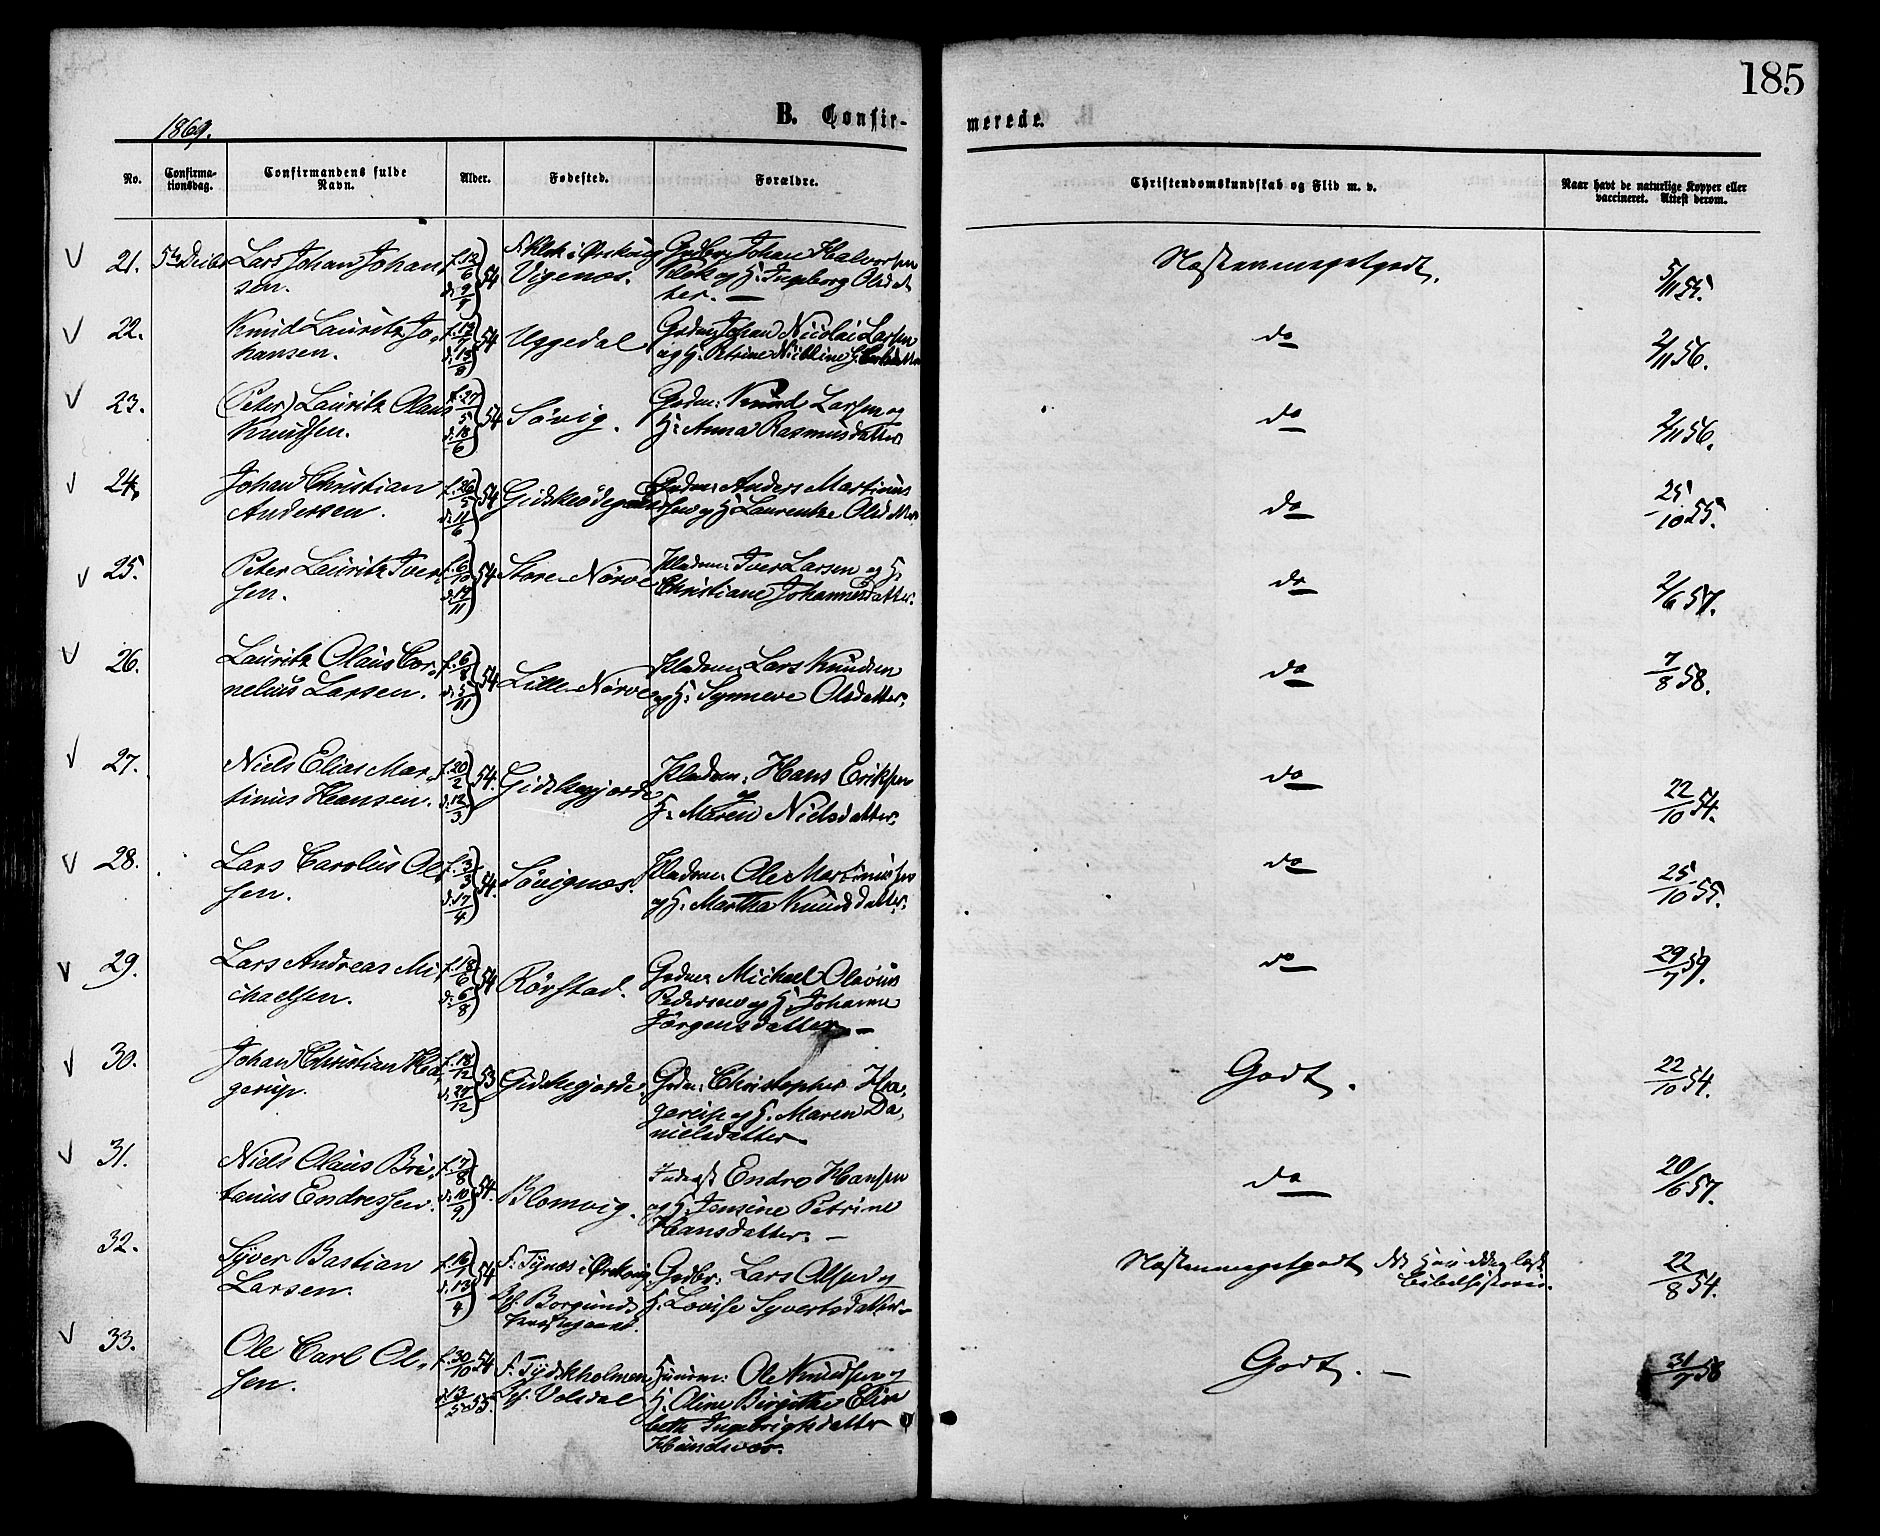 185
1869.
B. Confir-
merede.
No.
Confirma-
tionsdag.
Confirmandens fulde
Navn.
Alder.
Fødested.
Forældre.
Christendomskundskab og Flid m. v.
Naar havt de naturlige Kopper eller
vaccineret. Attest derom.
21. 5te Decbr Lars Johan Johan
sen.
f. 12/6 d. 9/9 54
Vigenæs.
Gadbr: Johan Halvorsen
Klok og H: Ingeborg Olsdat
ter. —
Næsten meget godt.
5/11 55.
22. Knud Lauritz Jo,
hansen.
f. 19/7 d. 13/8 54
Uggedal
Gadm: Johan Nicolai Larsen
og H: Petrine
do
2/11 56.
23. (Peter) Lauritz Olaus
Knudsen.
f. 27/5 d. 18/6 54
Søvig.
Gadm: Knud Larsen og
H: Anna Rasmusdatter
do
2/11 56.
24. Johan Christian
Andersen.
f. 26/5 d. 11/6 54
Gidskeødegaard
Gadm: Anders Martinus
sen og H: Laurentze Olsdatter
do
25/10 55.
25. Peter Lauritz Iver
sen.
f. 6/10 d. 12/11 54
Store-Nørve
Pladsm: Iver Larsen og H:
Christiane Johannesdatter.
do
2/6 57.
26. Lauritz Olaus Cor,
nelius Larsen.
f. 6/8 d. 5/11 54
Lille-Nørve
Pladsm: Lars Knudsen
og H: Synneve Olsdatter.
do
7/8 58.
27. Niels Elias Mar,
tinus Hansen.
f. 20/2 d. 12/3 54.
Gidskegjerde
Pladsm: Hans Eriksen
og
H: Maren Nielsdatter.
do
22/10 54.
28. Lars Carolus Ol,
sen.
f. 3/3 d. 17/4 54.
Søvignæs.
Pladsm: Ole Martinussen
og H: Martha Knudsdatter.
do
25/10 55.
29. Lars Andreas Mi
chaelsen.
f. 18/6 d. 6/8 54
Rørstad.
Gadm: Michael Olavus
Pedersen og H: Johanne
Jørgensdatter. —
do
29/7 59.
30. Johan Christian Ha,
gerup.
f. 18/12 d. 27/12 53
Gidskegjerde.
Gadm: Christopher Ha,
gerup og H: Maren Da,
nielsdatter.
Godt.
22/10 54.
31. Niels Olaus Bri,
tanus Endresen.
f. 7/8 d. 10/9 54.
Blomvig.
Inderst Endre Hansen
og H: Jensine Petrine
Hansdatter. —
do
20/6 57.
32. Syver Bastian
Larsen.
f. 16/1 d. 13/4 54
f. Tynæs i Ørskoug
bf. Borgunds
Gadbr: Lars Olsen og
H: Lovise Syvertsdatter.
Næsten meget godt
Bibelhistorie.
22/8 54.
33. Ole Carl Ol,
sen.
f. 30/10 54
d. 13/5 55.
f. Tydskholmen
bf. Volsdal
Huusm: Ole Knudsen og
H: Oline Birgithe Elisa
beth Ingebrigtsdatter
Godt. —
31/7 58